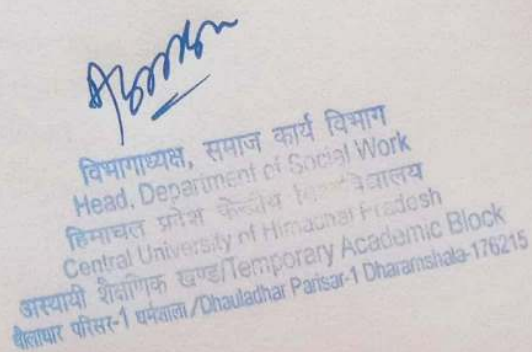 विभागाध्यक्ष, समाज कार्य विभाग
Head, Department of Social Work
हिमाचल प्रदेश केन्द्रीय विश्वविद्यालय
Central University of Himachal Pradesh
अस्थायी शैक्षणिक खण्ड/Temporary Academic Block
धौलाधार परिसर-1 धर्मशाला/Dhauladhar Parisar-1 Dharamshala-176215